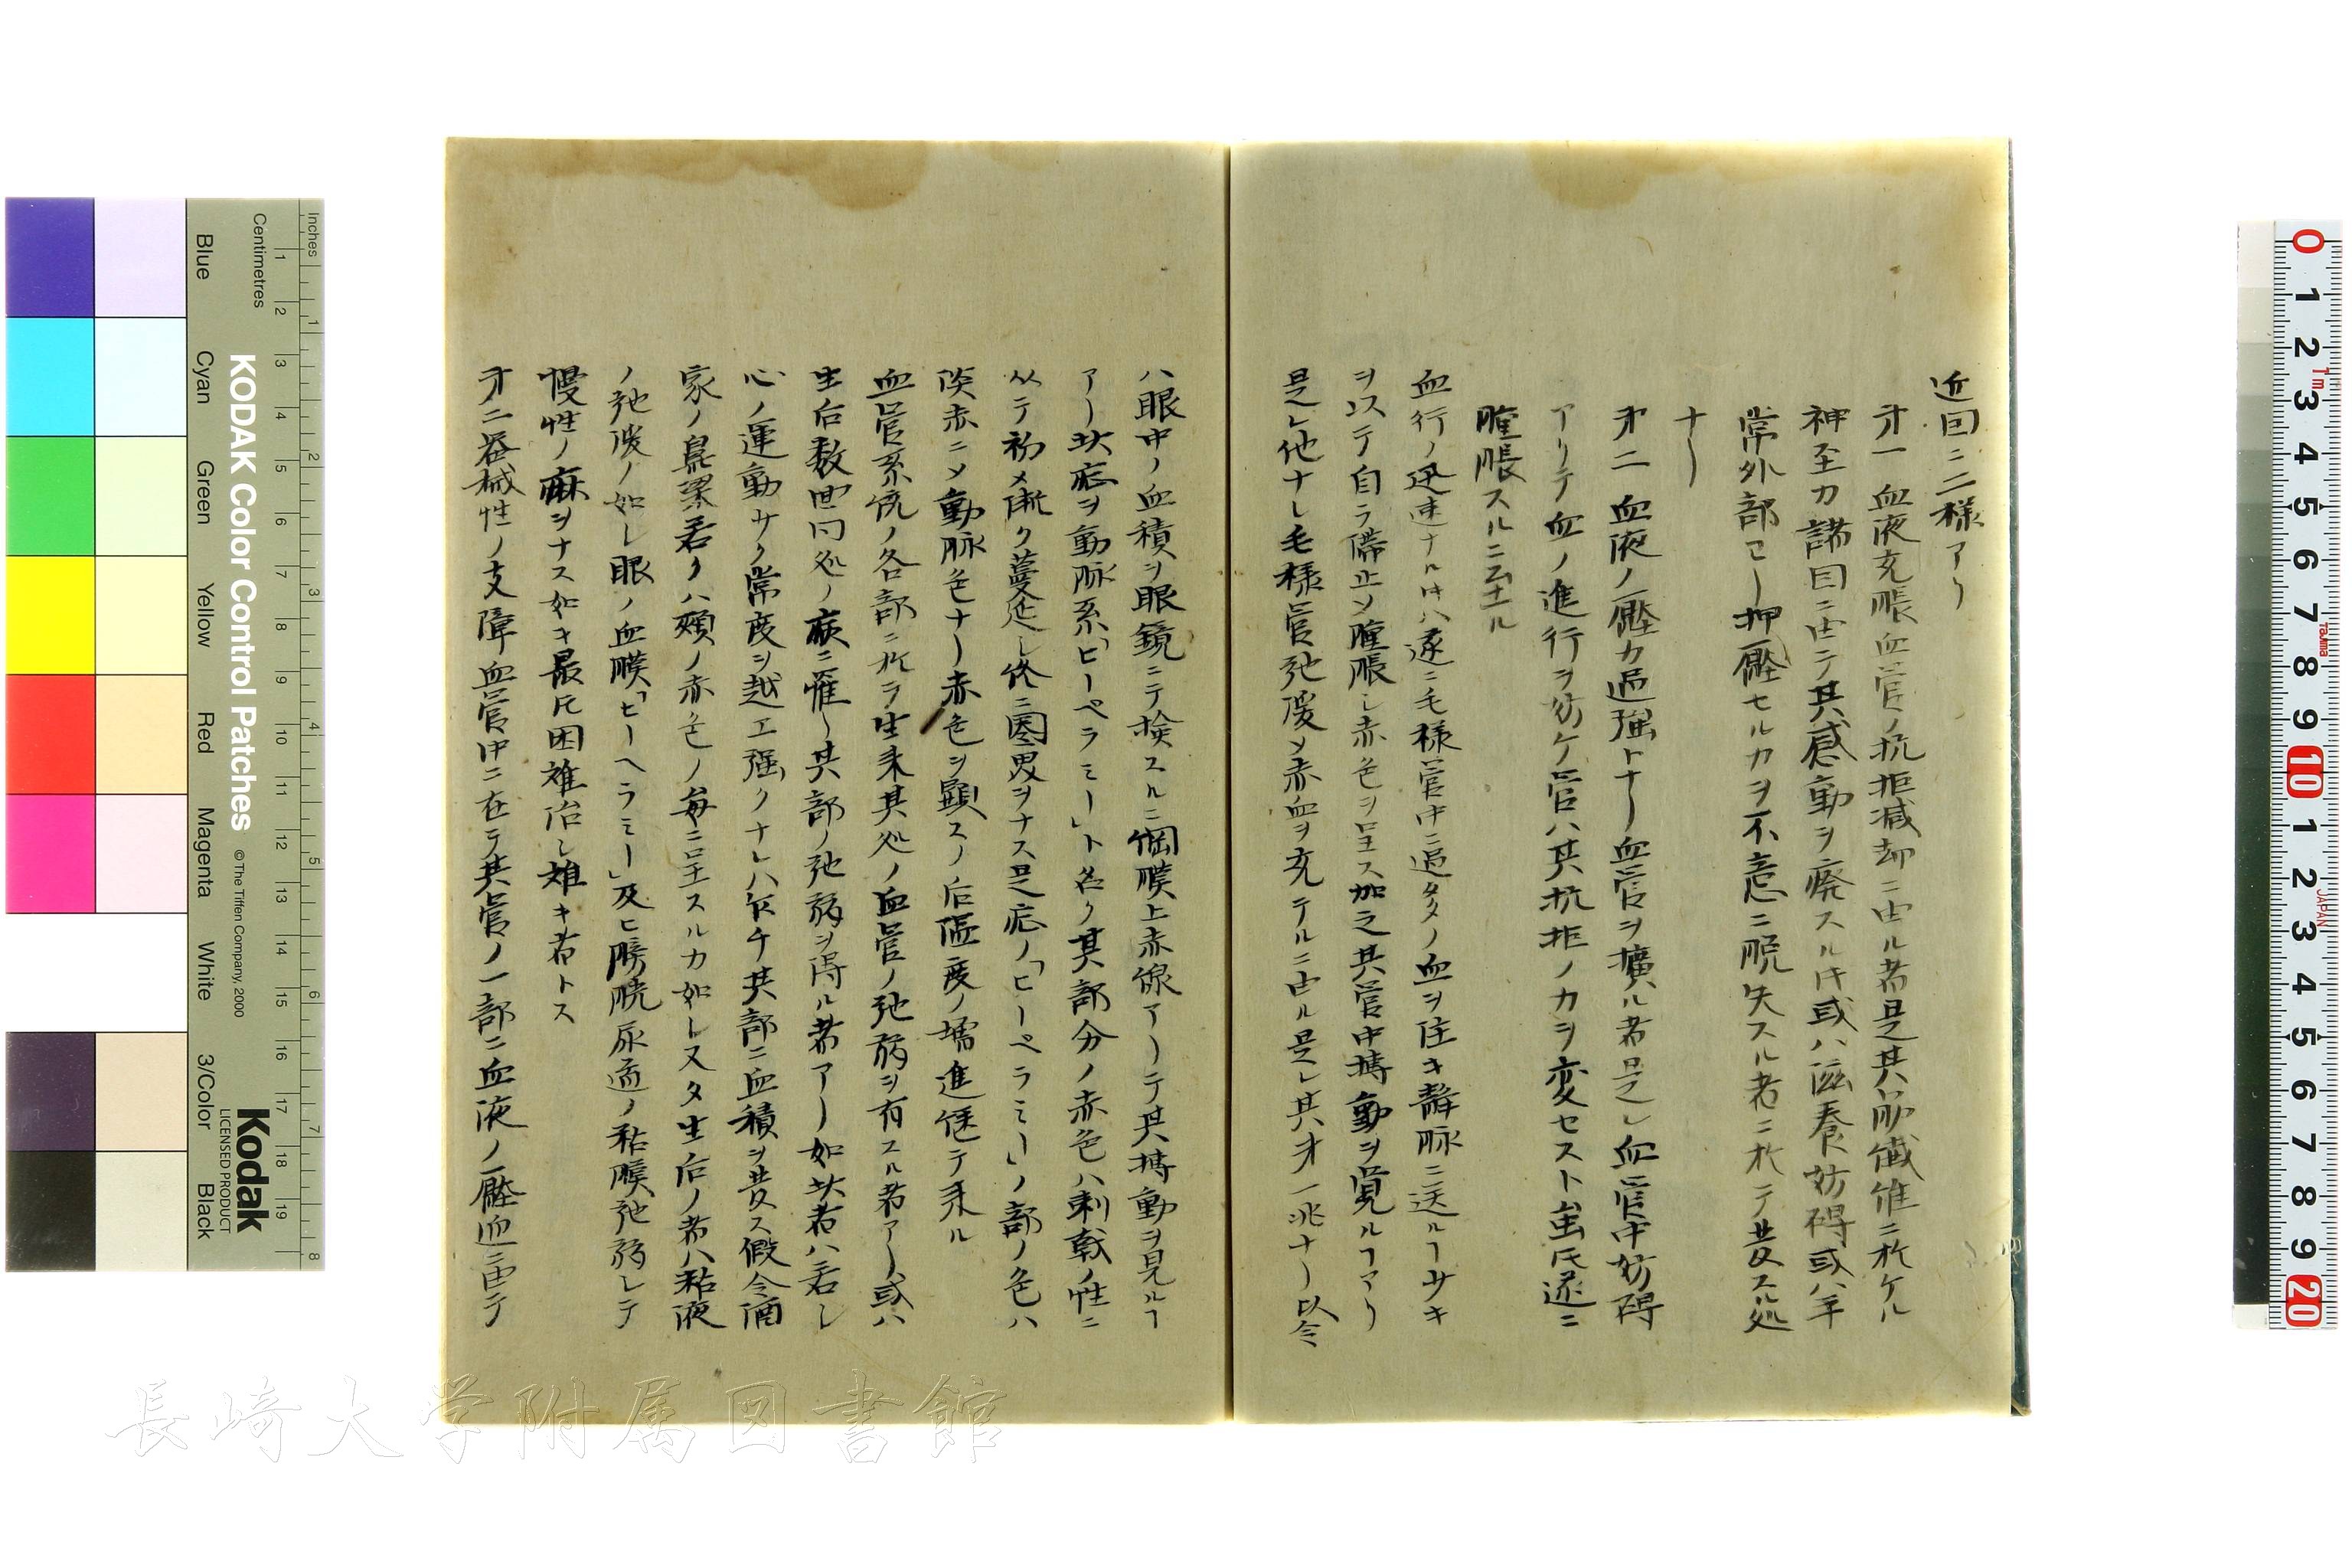 近因ニ二様アリ
才一 血液充脹血管ノ抗拒減却ニ由ル者是其器械性ニ於ケル
神至力諸因ニ由テ其感動ヲ廃スルꓘ或ハ滋養妨碍或ハ平
常外部ヨリ押壓セルカヲ不意ニ脱失スル者ニ於テ発スル処
ナリ
才二 血液ノ壓力過強トナリ血管ヲ擴ル者是レ血管中妨碍
アリテ血ノ進行ヲ妨ケ管ハ其抗拒ノカヲ変セスト虽𪜈遂ニ
腫脹スルニ至ル
血行ノ迅速ナルꓘハ遂ニ毛様管中ニ過多ノ血ヲ住キ静脉ニ送ルヿサキ
ヲ以テ自ラ滞止ノ腫脹シ赤色ヲ呈ス加之其管中搏動ヲ覚ルヿアリ
是レ他ナレ毛様管弛緩メ赤血ヲ充テルニ由ル是レ其才一兆ナリ以今
ハ眼中ノ血積ヲ眼鏡ニテ検スルニ網膜上赤線アリテ其搏動ヲ見ルヿ
アリ此症ヲ動脉系「ヒーペラミー」ト名ク其部分ノ赤色ハ刺戟ノ性ニ
从テ初メ漸ク蔓延シ終ニ圏界ヲナス是症ノ「ヒーペラミー」ノ部ノ色ハ
淡赤ニメ動脉色ナリ赤色ヲ顕スノ后温度ノ増進徃テ来ル
血管系統ノ各部ニ於ラ生来其処ノ血管ノ弛弱ヲ有スル者アリ或ハ
生后数回同処ノ病ニ罹リ其部ノ弛弱ヲ得ル者アリ如此者ハ若シ
心ノ運動サク常度ヲ越エ強クナレハ乍チ其部ニ血積ヲ発ス假令酒
家ノ鼻梁若クハ頬ノ赤色ノ毎ニ呈スルカ如レ又タ生后ノ者ハ粘液
ノ弛緩ノ如レ眼ノ血膜「ヒーヘラミー」及ヒ膀胱尿道ノ粘膜弛弱レテ
慢性ノ麻ヲナス如キ最𪜈困難治シ難キ者トス
才二器械性ノ支障血管中ニ在テ其管ノ一部ニ血液ノ壓迫ニ由テ
Inches
Centimetres
KODAK Color Control Patches
©The Tiffen Company, 2000
Kodak
LICENSED PRODUCT
Blue
Cyan
Green
Yellow
Red
Magenta
White
3/Color
Black
長崎大学附属図書館